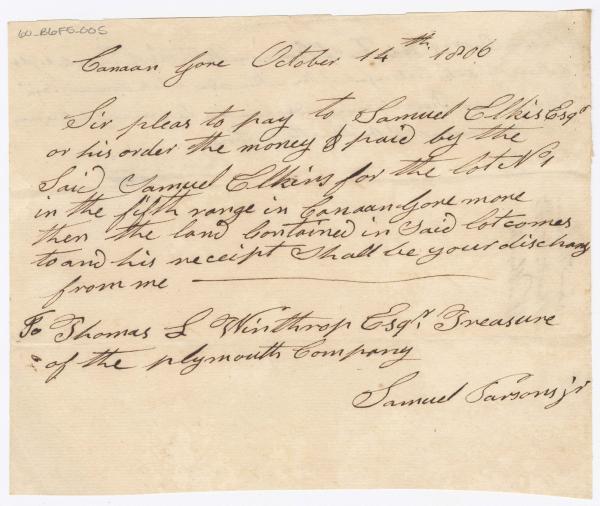 60_B6F5_005
Canaan Gore October 14th 1806
Sir pleas to pay to Samuel Elkis Esqr
or his order the money & paid by the
Said Samuel Elkins for the lot No 1
in the fifth range in Canaan Gore more
then the land Contained in Said lot comes
to and his receipt Shall be your discharg
from me
To Thomas L Winthrop Esqr. Treasure
of the plymouth Company
Samuel Parsons jr